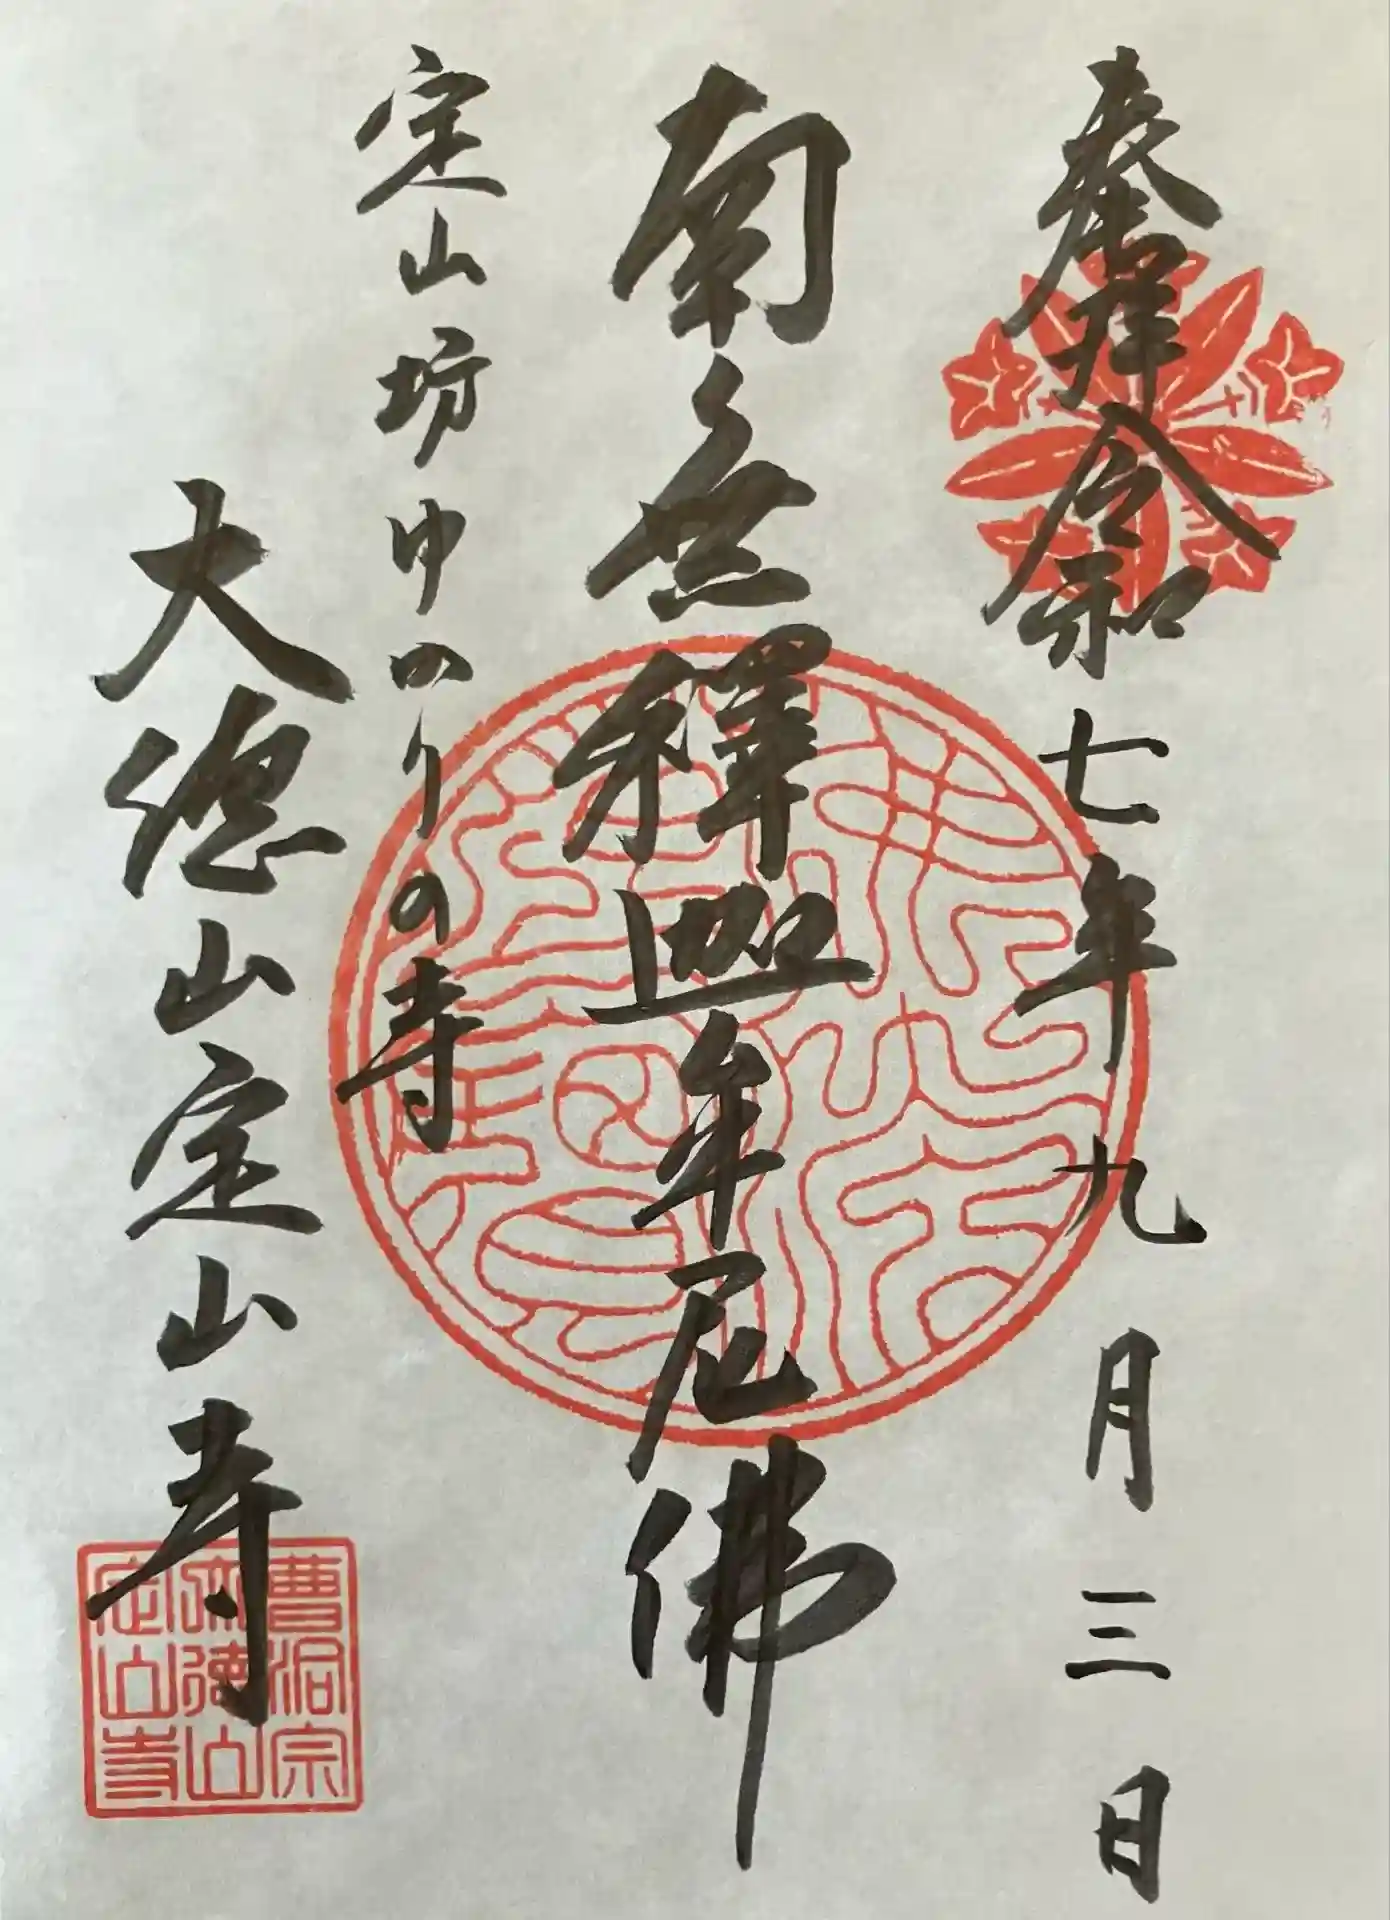 奉拝令和七年九月三日
南無釋迦牟尼佛
定山坊ゆかりの寺
大徳山定山寺
曹洞宗
徳山
定山寺